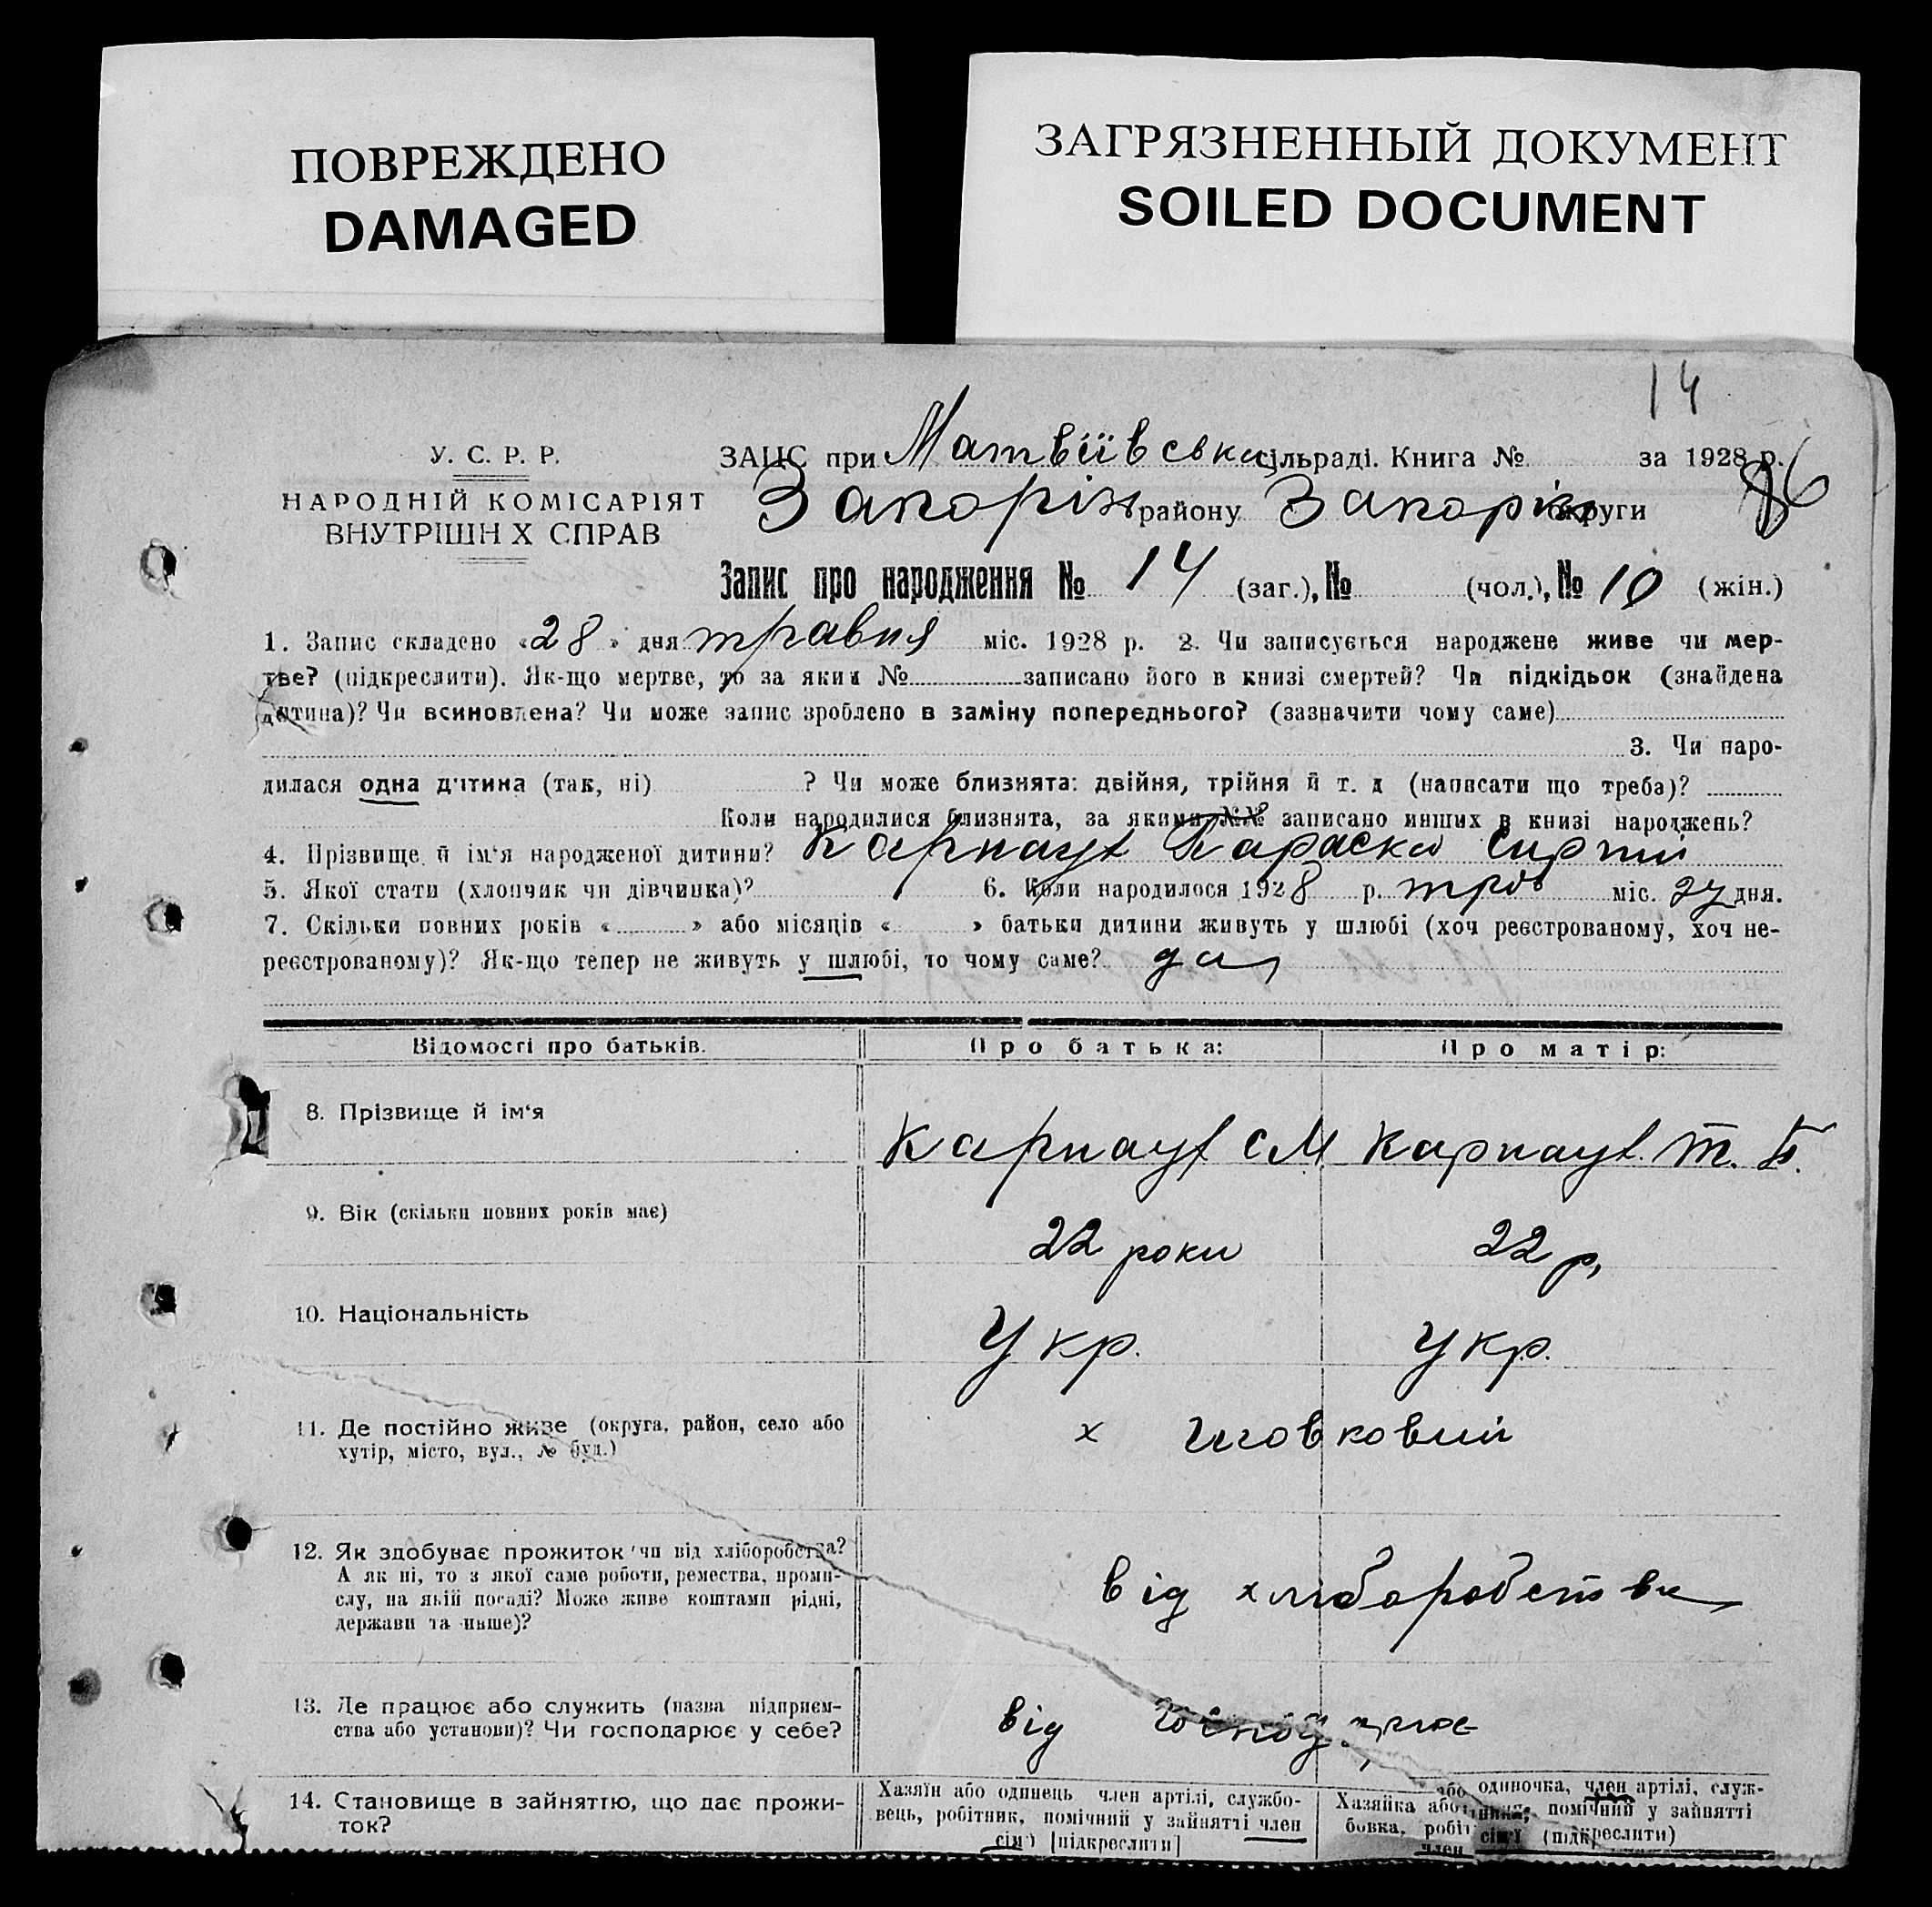 ПОВРЕЖДЕНО
DAMAGED
ЗАГРЯЗНЕННЫЙ ДОКУМЕНТ
SOILED DOCUMENT
14
У. С. Р. Р.
НАРОДНІЙ КОМІСАРІЯТ
ВНУТРІШН Х СПРАВ
ЗАЦС при Матвіївській сільраді. Книга № за 1928 р.
Запоріз району Запоріз округи
86
Запис про народження № 14 (заг.), № (чол.), № 10 (жін.)
1. Запис складено «28» дня травня міс. 1928 р. 2. Чи записується народжене живе чи мер-
тве? (підкреслити). Як-що мертве, то за яким № записано його в книзі смертей? Чи підкідьок (знайдена
дитина)? Чи всиновлена? Чи може запис зроблено в заміну попереднього? (зазначити чому саме)
3. Чи наро-
дилася одна дитина (так, ні) ? Чи може близнята: двійня, трійня й т. д (написати що треба)?
Коли народилися близнята, за якими №№ записано инших в книзі народжень?
4. Прізвище й ім'я народженої дитини? Карнаух Параска
5. Якої стати (хлопчик чи дівчинка)? 6. Коли народилося 1928 р. трав міс. 27 дня.
7. Скільки повних років « » або місяців « » батьки дитини живуть у шлюбі (хоч реєстрованому, хоч не-
реєстрованому)? Як-що тепер не живуть у шлюбі, то чому саме? да
Відомості про батьків.
Про батька:
Про матір:
8. Прізвище й ім'я
Карнаух С М
Карнаух. Т. Б.
9. Вік (скільки повних років має)
22 роки
22 р,
10. Національність
Укр.
Укр.
11. Де постійно живе (округа, район, село або
хутір, місто, вул., № буд.)
х Шовковий
12. Як здобуває прожиток чи від хліборобства?
А як ні, то з якої саме роботи, ремества, проми-
слу, на якій посаді? Може живе коштами рідні,
держави та инше)?
від хліборобства
13. Де працює або служить (назва підприєм-
ства або установи)? Чи господарює у себе?
від
14. Становище в зайняттю, що дає прожи-
ток?
Хазяїн або одинець член артілі, службо-
вець, робітник, помічний у зайнятті член
сім'ї [підкреслити]
Хазяйка або одиночка, член артілі, служ-
бовка, помічний у зайнятті
член сім'ї (підкреслити)